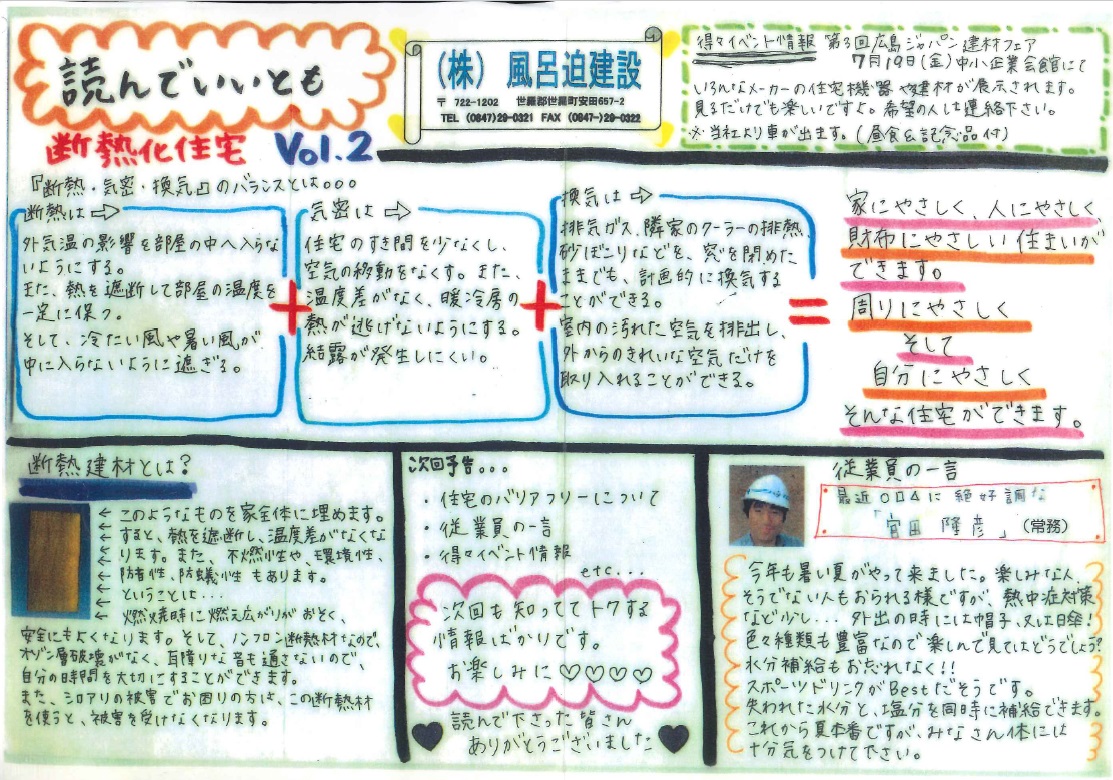 読んでいいとも
断熱化住宅 Vol.2
(株) 風呂迫建設
〒 722-1202 世羅郡世羅町安田657-2
TEL (0847)29-0321 FAX (0847-)29-0322
得々イベント情報 第3回広島ジャパン建材フェア
7月19日(金)中小企業会館にて
いろんなメーカーの住宅機器や建材が展示されます。
見るだけでも楽しいですよ。希望の人は連絡下さい。
※当社より車が出ます。(昼食&記念品付)
『断熱・気密・換気』のバランスとは。。。
断熱は⇨
外気温の影響を部屋の中へ入らな
いようにする。
また、熱を遮断して部屋の温度を
一定に保つ。
そして、冷たい風や暑い風が
中に入らないように遮ぎる。
+
気密は⇨
住宅のすき間を少なくし、
空気の移動をなくす。また、
温度差がなく、暖冷房の
熱が逃げないようにする。
結露が発生しにくい。
+
換気は⇨
排気ガス、隣家のクーラーの排熱、
砂ぼこりなどを、窓を閉めた
ままでも、計画的に換気する
ことができる。
室内の汚れた空気を排出し、
外からのきれいな空気だけを
取り入れることができる。
=
家にやさしく、人にやさしく
財布にやさしい住まいが
できます。
周りにやさしく
そして
自分にやさしく
そんな住宅ができます。
断熱建材とは?
←このようなものを家全体に埋めます。
←すると、熱を遮断し、温度差がなくな
←ります。また、不燃性や、環境性、
←防音性、防蟻性もあります。
←ということは...
←燃焼時に燃え広がりがおそく、
安全にもよくなります。そして、ノンフロン断熱材なので、
オゾン層破壊がなく、耳障りな音も通さないので、
自分の時間を大切にすることができます。
また、シロアリの被害でお困りの方は、この断熱材
を使うと、被害を受けなくなります。
次回予告...
・住宅のバリアフリーについて
・従業員の一言
・得々イベント情報
etc...
次回も知っててトクする
情報ばかりです。
お楽しみに♡♡♡♡
読んで下さった皆さん
ありがとうございました
従業員の一言
最近○□△に絶好調な
「宮田 隆彦」(常務)
今年も暑い夏がやって来ました。楽しみな人、
そうでない人もおられる様ですが、熱中症対策
など少し... 外出の時には帽子、又は日傘!
色々種類も豊富なので楽しんで見てはどうでしょう?
水分補給もお忘れなく!!
スポーツドリンクがBestだそうです。
失われた水分と、塩分を同時に補給できます。
これから夏本番ですが、みなさん体には
十分気をつけて下さい。